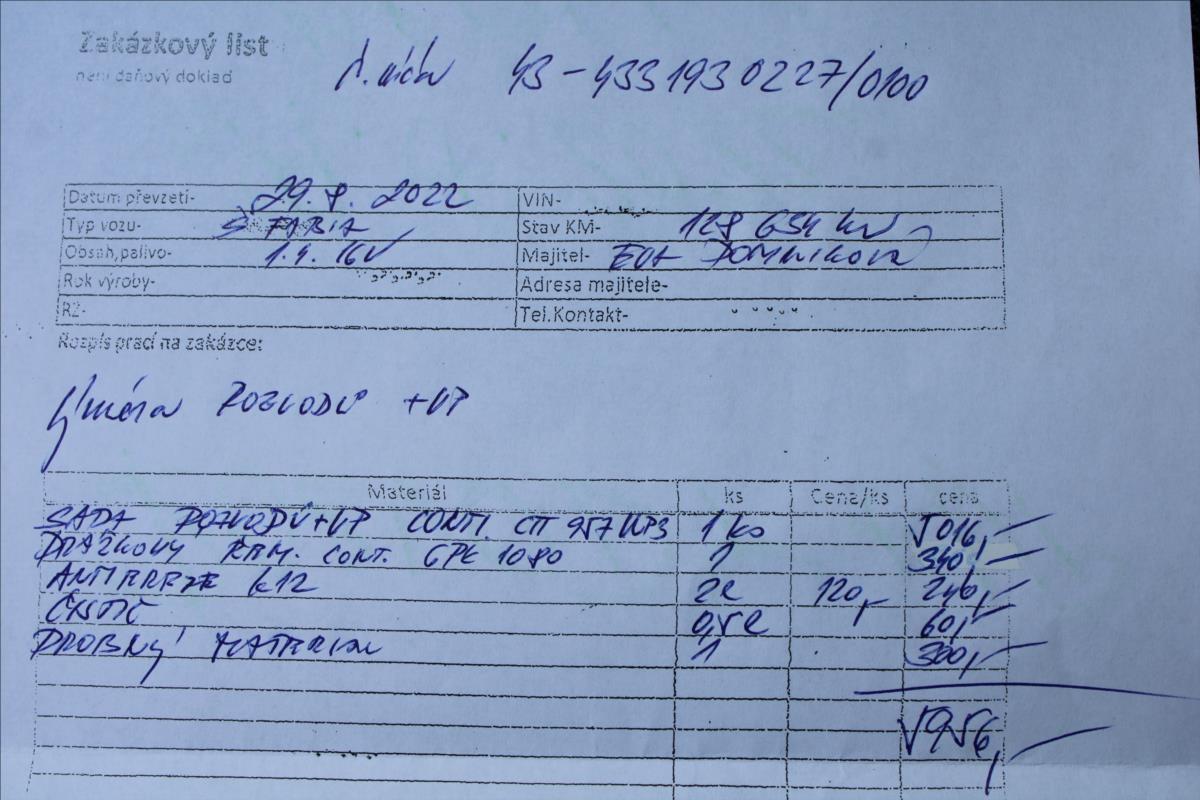 Zakázkový list
není daňový doklad
č. účtu 43-4331930227/0100
Datum převzetí- 29. 8. 2022 VIN-
Typ vozu- Š FABIA Stav KM- 128 654 km
Obsah,palivo- 1.4. 16V Majitel- EVA DOMINIKOVÁ
Rok výroby- Adresa majitele-
RZ- Tel.Kontakt-
Rozpis prací na zakázce:
Výměna ROZVODŮ +VP
Materiál ks Cena/ks cena
SADA ROZVODŮ+VP CONTI. CTT 957 WP3 1 ks 5016,-
DRÁŽKOVÝ ŘEM. CONT. 6PK 1080 1 340,-
ANTIFREEZE G12 2l 120,- 240,-
ČISTIČ 0,5l 60,-
DROBNÝ MATERIAL 1 300,-
5956,-